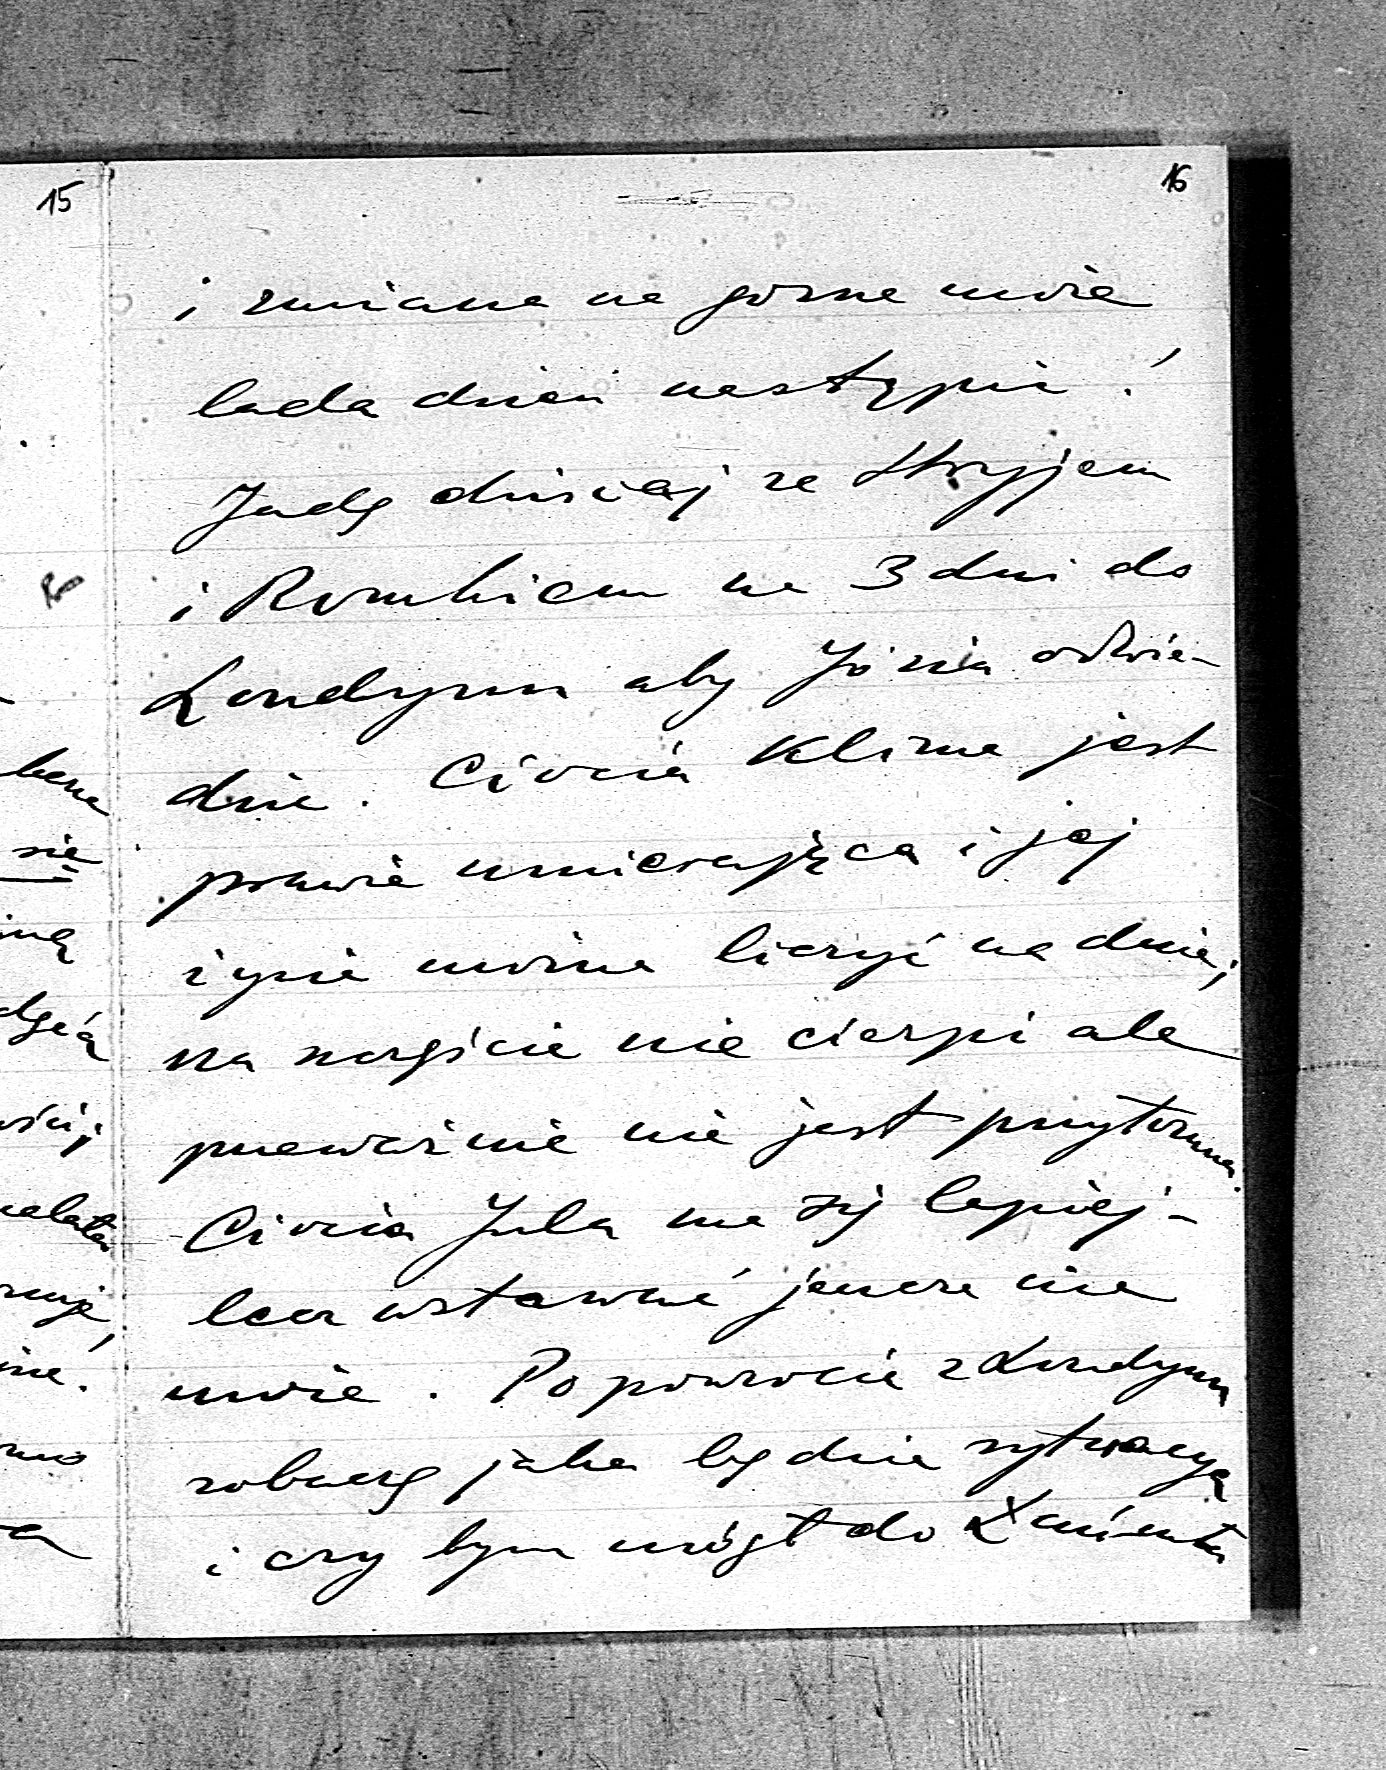 15
16
i zmiana na gorsze może
lada dzień nastąpić!
Jadę dzisiaj ze Stryjem
i Romkiem na 3 dni do
Londynu aby Józia odwie-
dzić. Ciocia Klima jest
prawie umierająca i jej
życie można liczyć na dnie;
na szczęście nie cierpi ale
przeważnie nie jest przytomna.
Ciocia Jula ma się lepiej -
lecz wstawać jeszcze nie
może. Po powrocie z Londynu
zobaczę jaka będzie sytuacya
i czy bym mógł do Łańcuta
bena
się